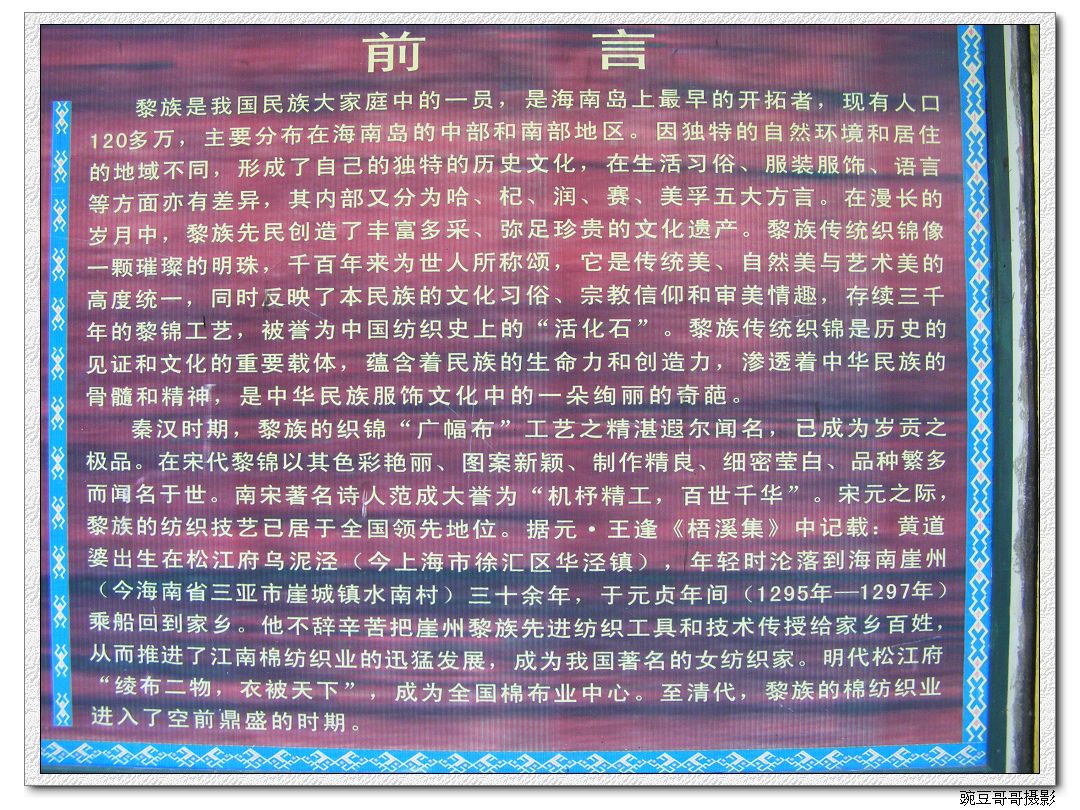 前 言
黎族是我国民族大家庭中的一员，是海南岛上最早的开拓者，现有人口
120多万，主要分布在海南岛的中部和南部地区。因独特的自然环境和居住
的地域不同，形成了自己的独特的历史文化，在生活习俗、服装服饰、语言
等方面亦有差异，其内部又分为哈、杞、润、赛、美孚五大方言。在漫长的
岁月中，黎族先民创造了丰富多采、弥足珍贵的文化遗产。黎族传统织锦像
一颗璀璨的明珠，千百年来为世人所称颂，它是传统美、自然美与艺术美的
高度统一，同时反映了本民族的文化习俗、宗教信仰和审美情趣，存续三千
年的黎锦工艺，被誉为中国纺织史上的“活化石”。黎族传统织锦是历史的
见证和文化的重要载体，蕴含着民族的生命力和创造力，渗透着中华民族的
骨髓和精神，是中华民族服饰文化中的一朵绚丽的奇葩。
秦汉时期，黎族的织锦“广幅布”工艺之精湛遐尔闻名，已成为岁贡之
极品。在宋代黎锦以其色彩艳丽、图案新颖、制作精良、细密莹白、品种繁多
而闻名于世。南宋著名诗人范成大誉为“机杼精工，百世千华”。宋元之际，
黎族的纺织技艺已居于全国领先地位。据元·王逢《梧溪集》中记载：黄道
婆出生在松江府乌泥泾（今上海市徐汇区华泾镇），年轻时沦落到海南崖州
（今海南省三亚市崖城镇水南村）三十余年，于元贞年间（1295年—1297年）
乘船回到家乡。他不辞辛苦把崖州黎族先进纺织工具和技术传授给家乡百姓，
从而推进了江南棉纺织业的迅猛发展，成为我国著名的女纺织家。明代松江府
“绫布二物，衣被天下”，成为全国棉布业中心。至清代，黎族的棉纺织业
进入了空前鼎盛的时期。
豌豆哥哥摄影